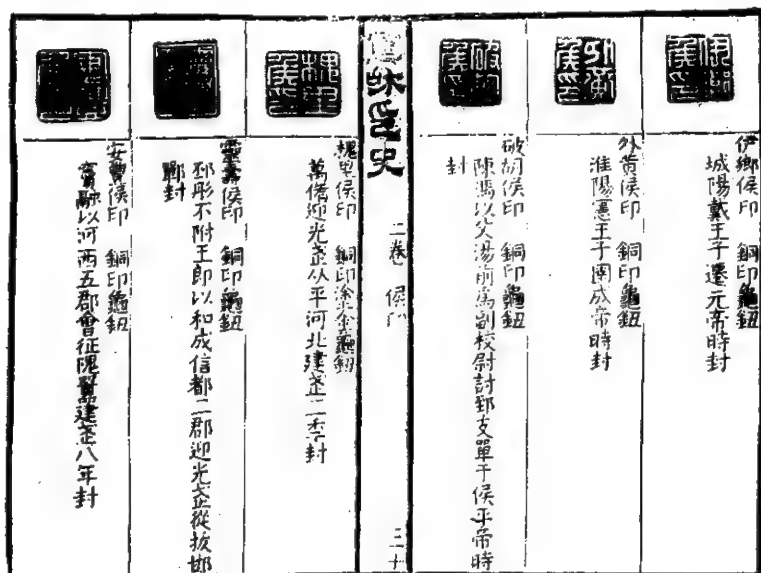 伊鄉侯印
伊鄉侯印 銅印龜鈕
城陽戴王子遷元帝時封
外黃侯印
外黃侯印 銅印龜鈕
淮陽憲王子圉成帝時封
破胡侯印
破胡侯印 銅印龜鈕
陳馮以父湯前爲副校尉討郅支單于侯平帝時
封
印史 二卷 侯印 三十
槐里侯印
槐里侯印 銅印塗金龜鈕
萬脩迎光武从平河北建武二秊封
靈壽侯印 銅印龜鈕
邳彤不附王郎以和成信都二郡迎光武從拔邯
鄲封
安豐侯印 銅印龜鈕
竇融以河西五郡會征隗囂建武八年封